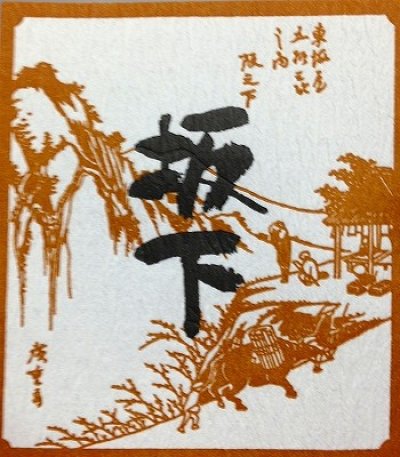 東海道
五拾三次
之内
阪之下
坂下
廣重画